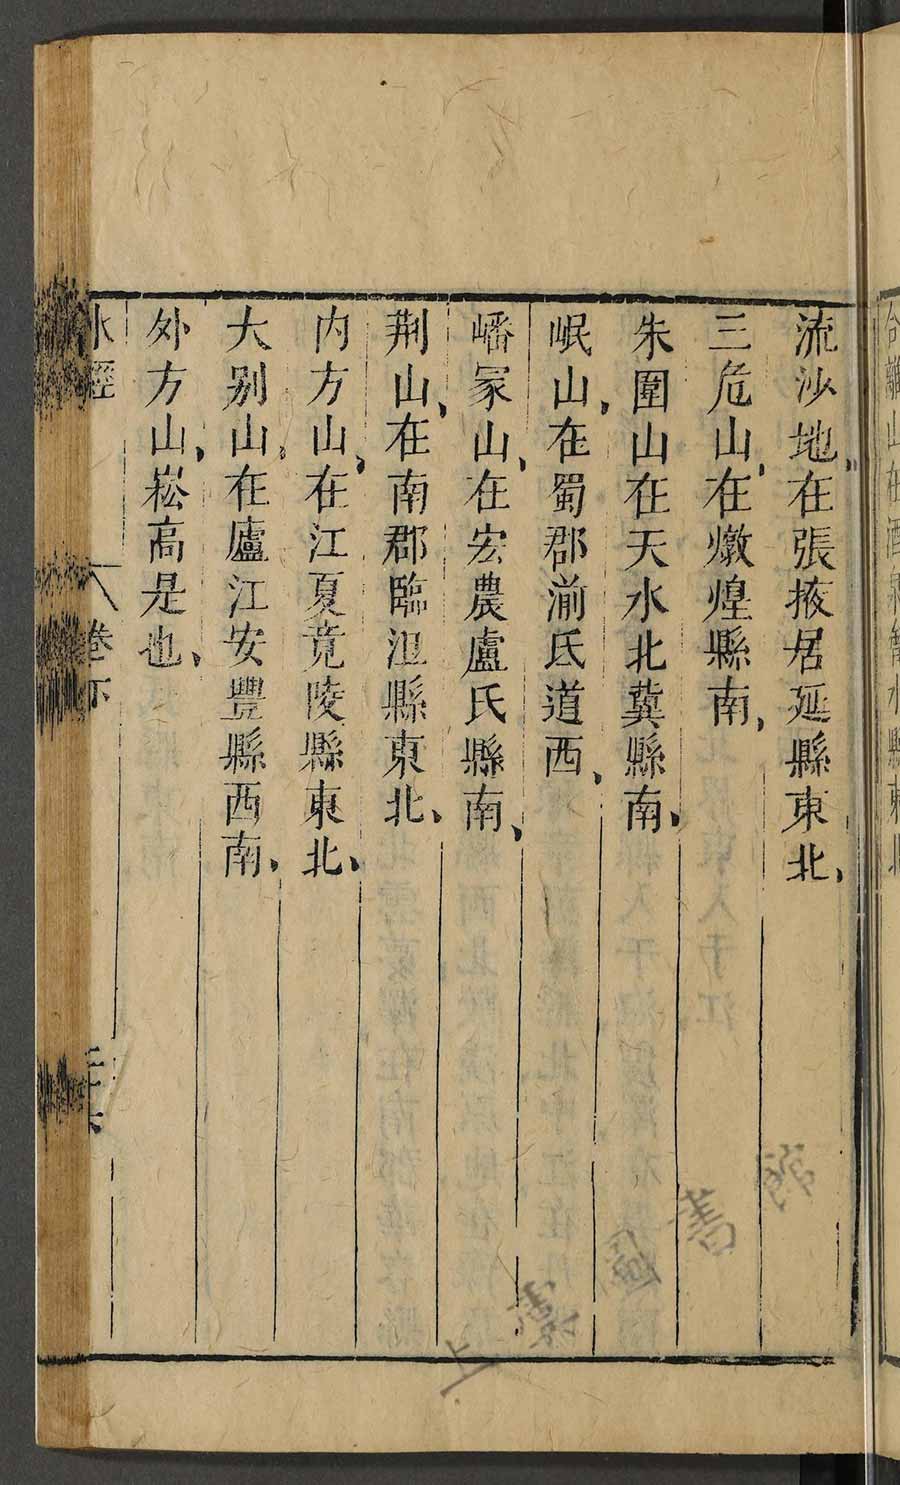 流沙地、在張掖居延縣東北、
三危山、在燉煌縣南、
朱圉山在天水北冀縣南、
岷山、在蜀郡湔氐道西、
嶓冢山、在宏農盧氏縣南、
荆山、在南郡臨沮縣東北、
内方山、在江夏竟陵縣東北、
大别山、在廬江安豐縣西南、
外方山、崧高是也、
水經
卷下